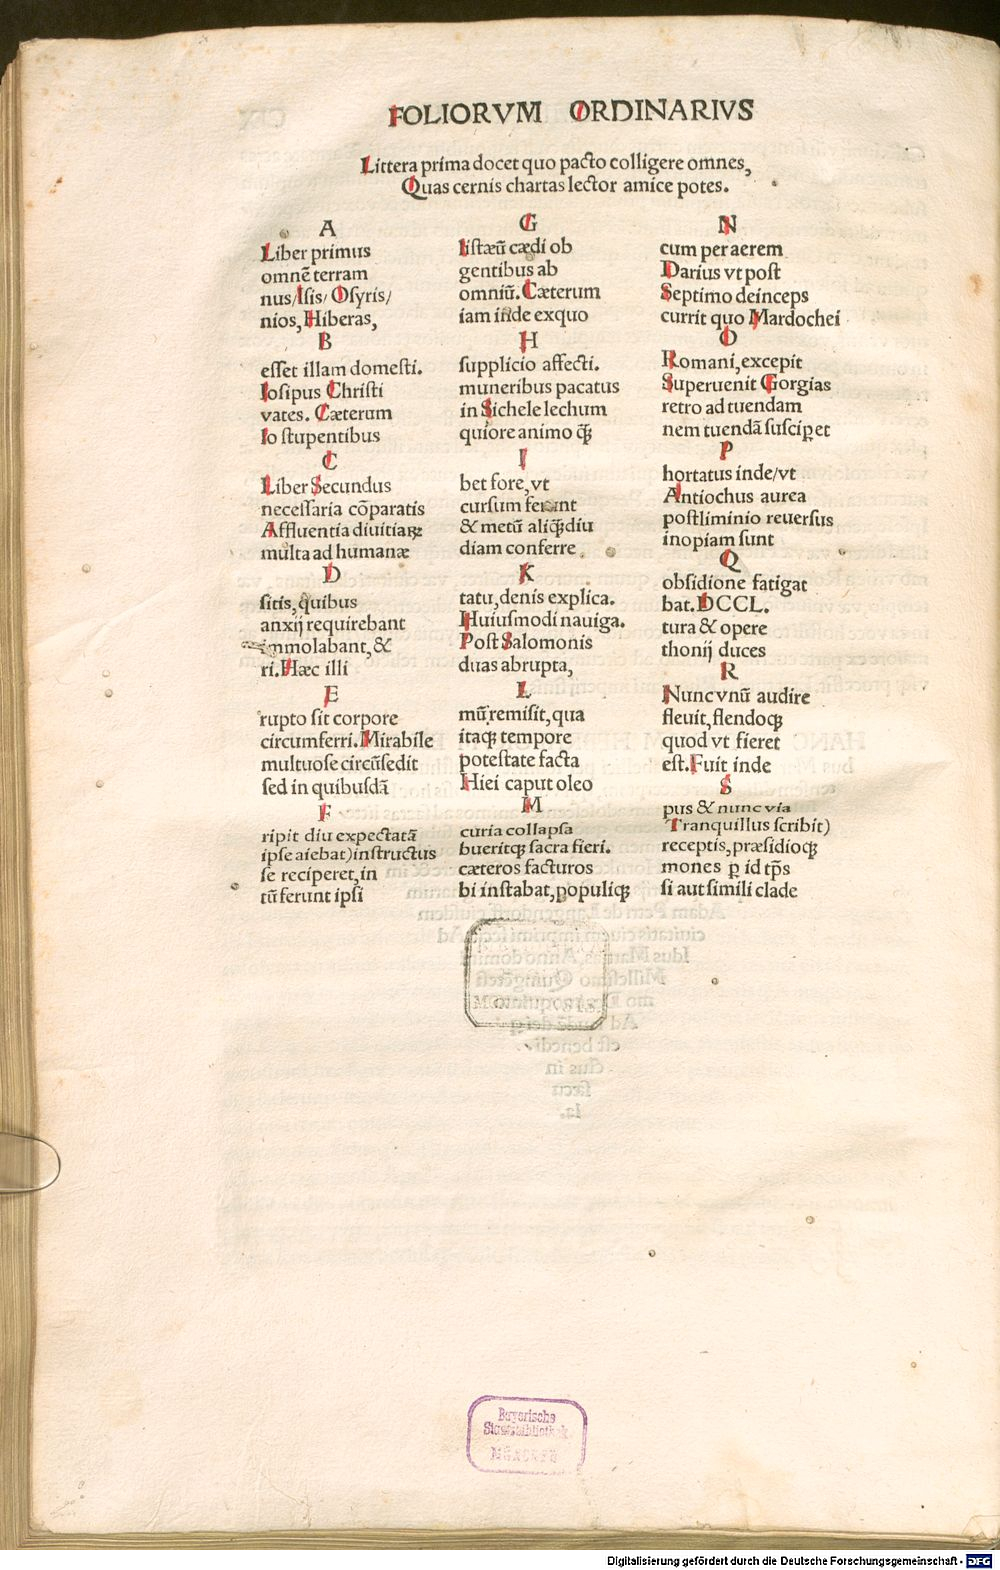 FOLIORVM ORDINARIVS
Littera prima docet quo pacto colligere omnes,
Quas cernis chartas lector amice potes.
A
Liber primus
omnē terram
nus/Isis/Osyris/
nios, Hiberas,
B
esset illam domesti.
Iosipus Christi
vates. Cæterum
Io stupentibus
C
Liber Secundus
necessaria cōparatis
Affluentia diuitiaꝝ
multa ad humanæ
D
sitis, quibus
anxij requirebant
immolabant, &
ri. Hæc illi
E
rupto sit corpore
circumferri. Mirabile
multuose circūsedit
sed in quibusdā
F
ripit diu expectatā
ipse aiebat) instructus
se reciperet, in
tū ferunt ipsi
G
listæū cædi ob
gentibus ab
omniū. Cæterum
iam inde exquo
H
supplicio affecti.
muneribus pacatus
in Sichele lechum
quiore animo ꝙ̃
I
bet fore, vt
cursum ferunt
& metū aliꝙ̃diu
diam conferre
K
tatu, denis explica.
Huiusmodi nauiga.
Post Salomonis
duas abrupta,
L
mū remisit, qua
itaqꝫ tempore
potestate facta
Hiei caput oleo
M
curia collapsa
bueritqꝫ sacra fieri.
cæteros facturos
bi instabat, populiqꝫ
N
cum per aerem
Darius vt post
Septimo deinceps
currit quo Mardochei
O
Romani, excepit
Superuenit Gorgias
retro ad tuendam
nem tuendā suscip̱et
P
hortatus inde/vt
Antiochus aurea
postliminio reuersus
inopiam sunt
Q
obsidione fatigat
bat. DCCL.
tura & opere
thonij duces
R
Nunc vnū audire
fleuit, flendoqꝫ
quod vt fieret
est. Fuit inde
S
pus & nunc via
Tranquillus scribit)
receptis, præsidioqꝫ
mones p̱ id tp̄s
si aut simili clade
Bayerische
Staatsbibliothek
MÜNCHEN
Digitalisierung gefördert durch die Deutsche Forschungsgemeinschaft - DFG